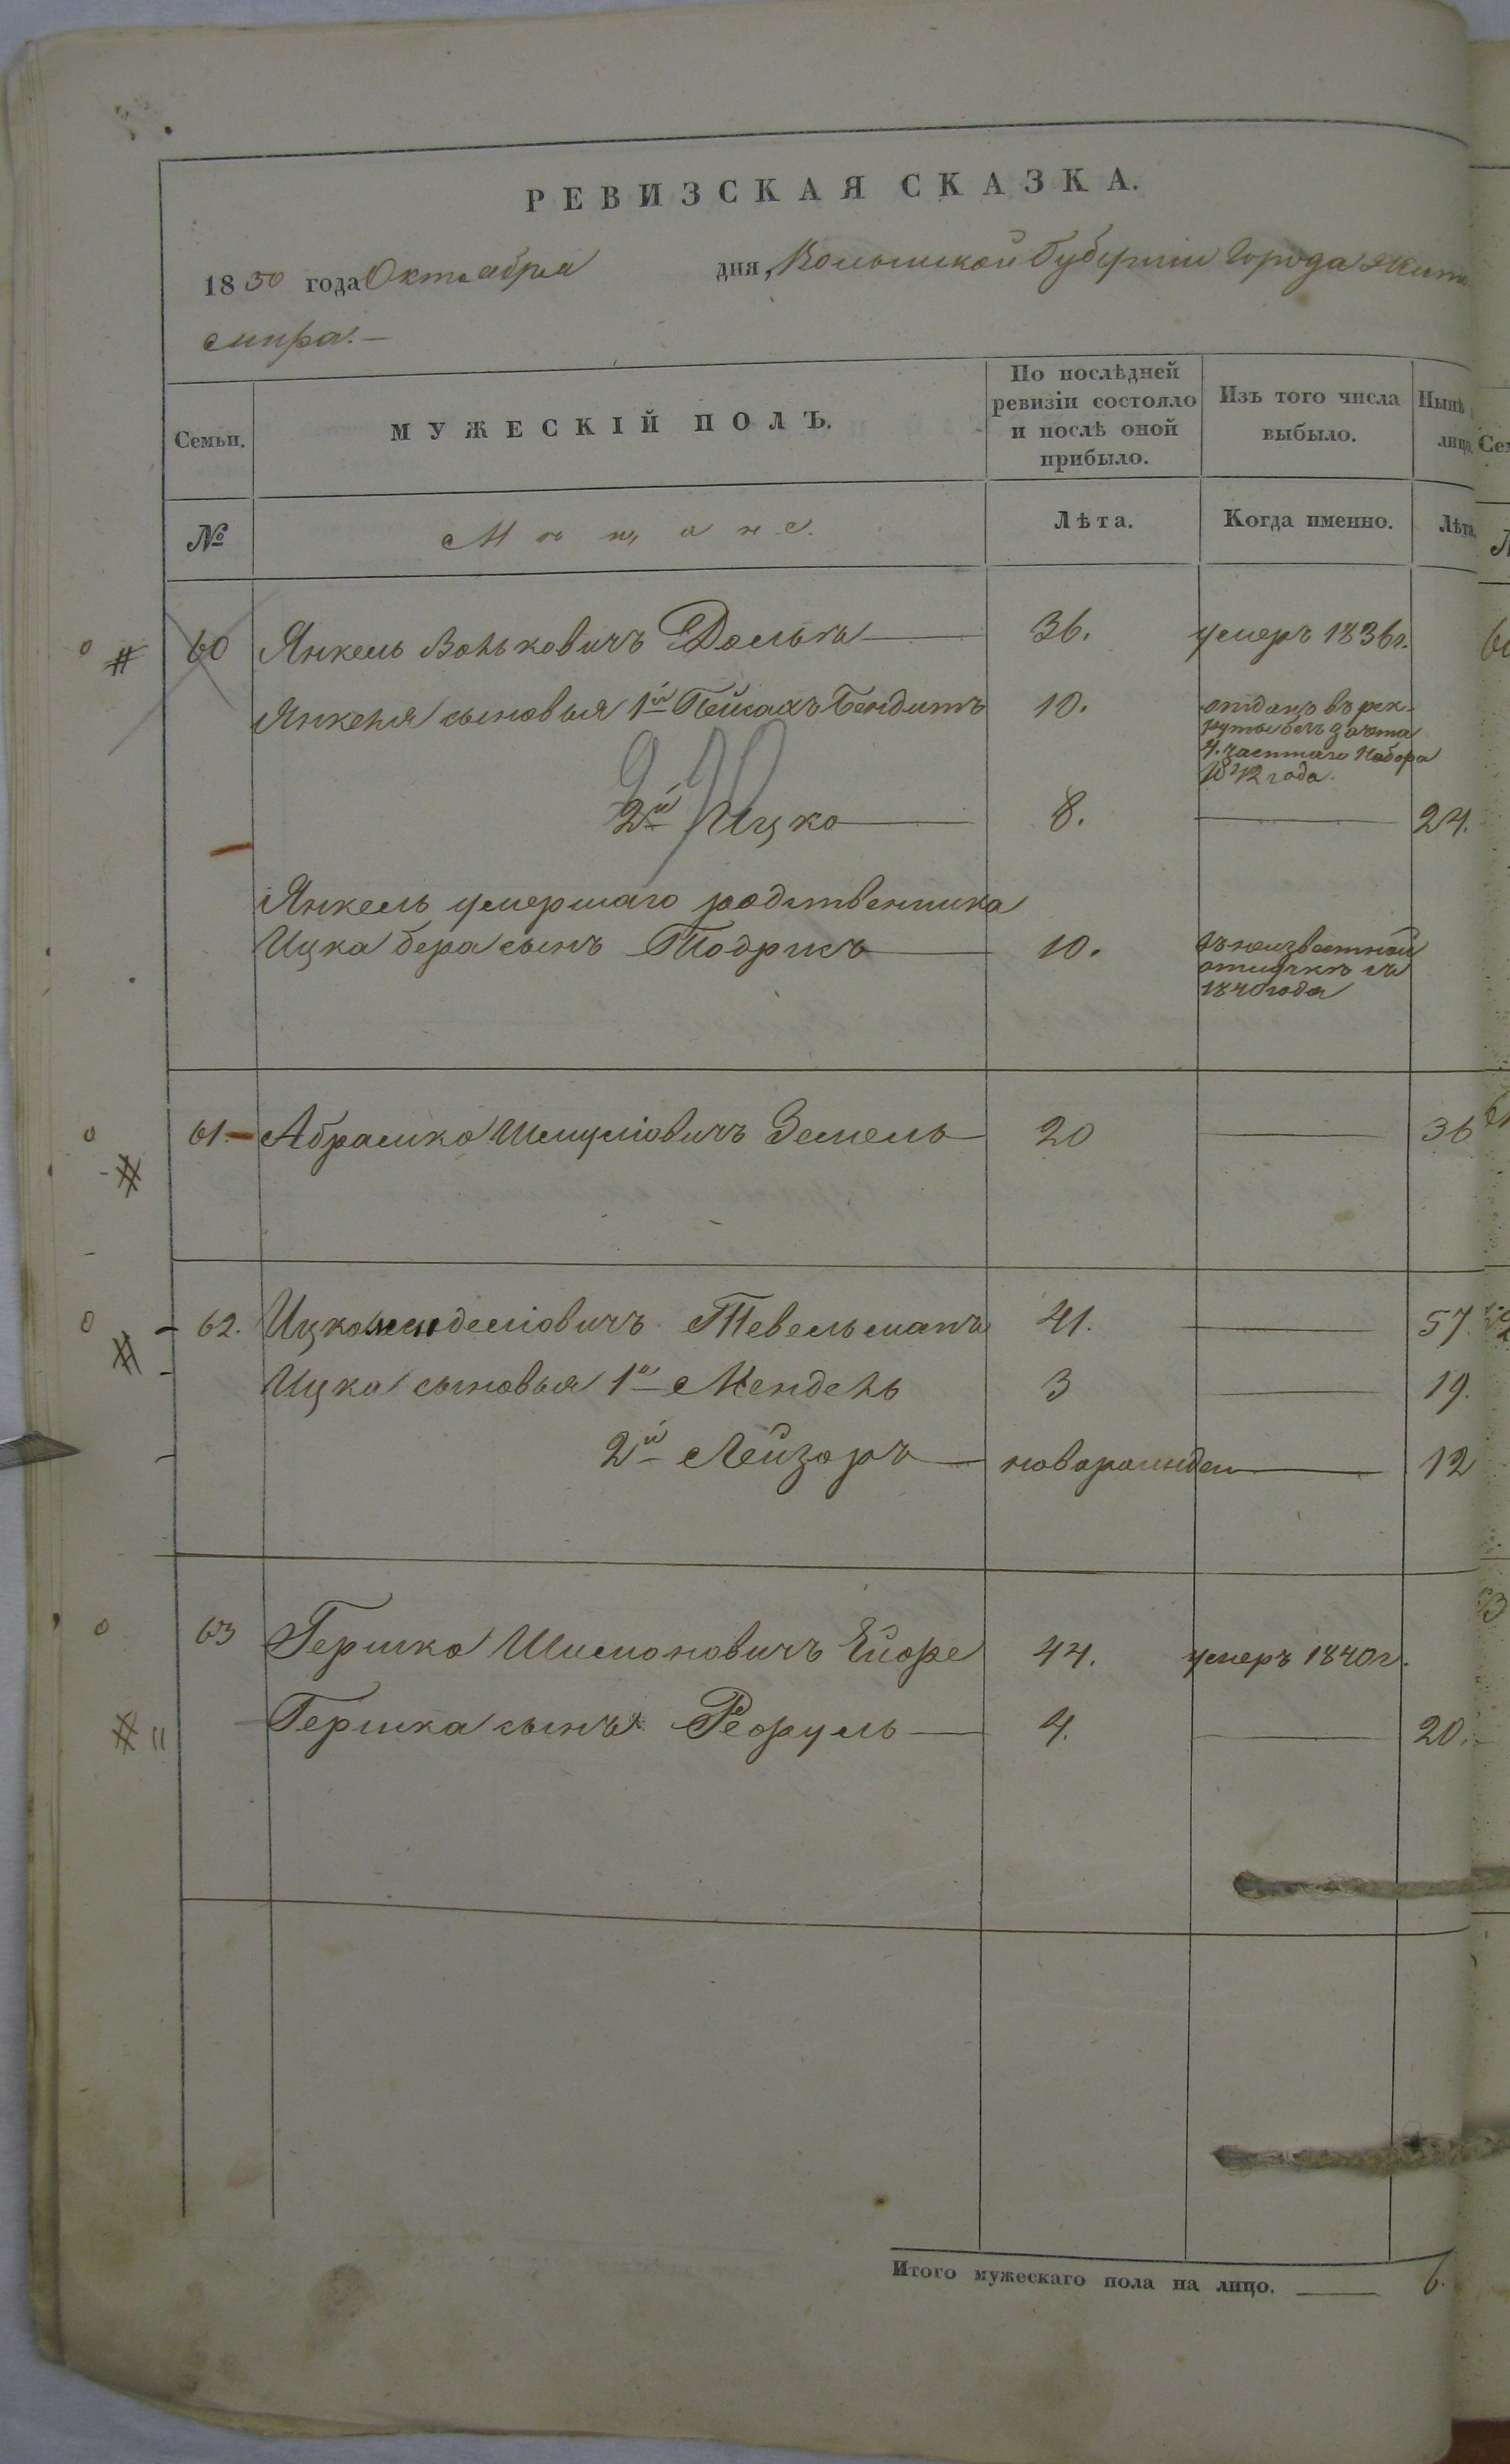 РЕВИЗСКАЯ СКАЗКА.
1850 года Октября дня, Волынской Губернии Города Жито
мира.—
Семьи. МУЖЕСКІЙ ПОЛЪ. По послѣдней ревизіи состояло и послѣ оной прибыло. Изъ того числа выбыло. Нынѣ лицо.
№ Мѣщане. Лѣта. Когда именно. Лѣта.
60 Янкель Вольковичъ 36. умеръ 1836 г.
Янкеля сыновья 1й Пейсахъ Бендитъ 10. отданъ въ рек-
руты безъ зачета
4. частнаго Набора
1842 года.
2й Ицко 8. 24.
Янкель умершаго родственника
Ицка Бера сынъ 10. въ неизвестной
отлучке съ
1840 года
61. Абрамко Шмулiовичъ Земель 20 36
62. Ицко Менделiовичъ Тевельманъ 41. 57.
Ицка сыновья 1й Мендель 3 19.
2й Лейзоръ новорожден 12
63 Гершко Шимоновичъ 44. умеръ 1840 г.
Гершка сынъ 4. 20.
Итого мужескаго пола на лицо. 6.